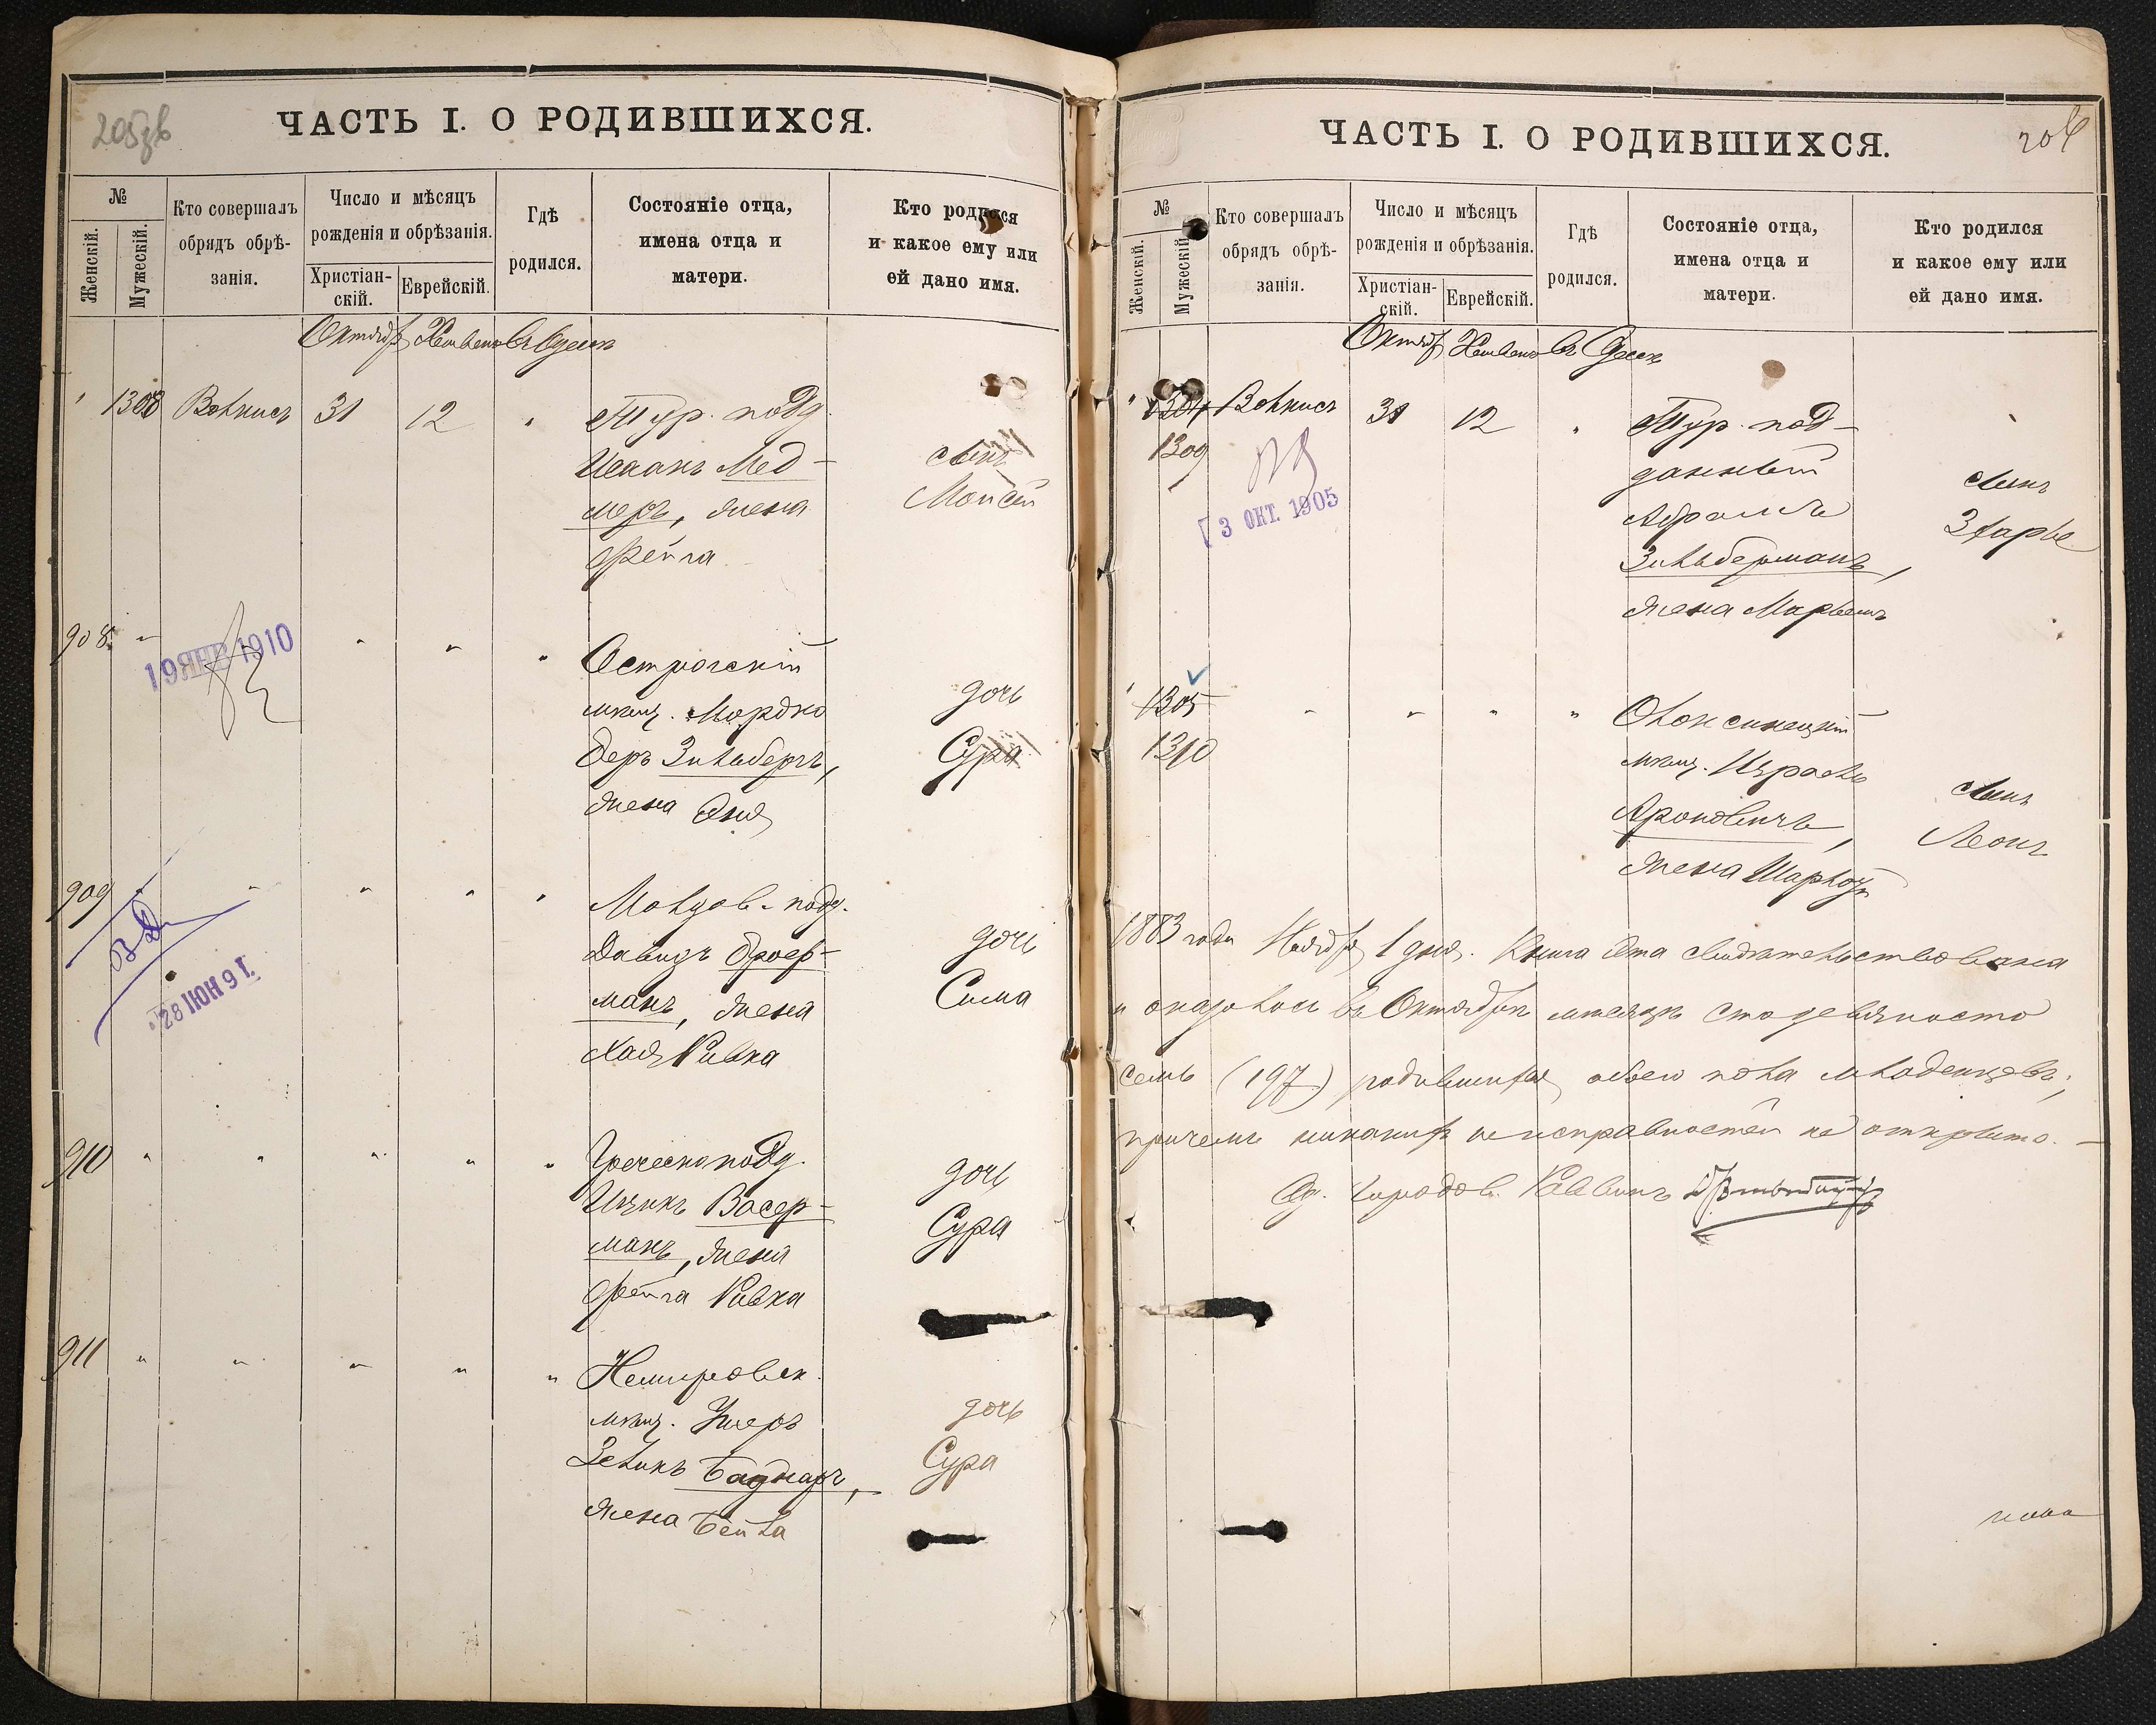 205 зв
ЧАСТЬ I. О РОДИВШИХСЯ.
№
Женскій.
Мужескій.
Кто совершалъ
обрядъ обрѣ-
занія.
Число и мѣсяцъ
рожденія и обрѣзанія.
Христіан-
скій.
Еврейскій.
Гдѣ
родился.
Состояніе отца,
имена отца и
матери.
Кто родился
и какое ему или
ей дано имя.
Октябрь Хешвенъ въ Одессѣ
1308 Вольнисъ 31 12 " Тур. подд.
Исаакъ Мед-
меръ, жена
Фейга
сынъ
Моисей
908 " " " " Острогскій
мѣщ. Мордко
Беръ Зильбергъ,
жена Эня
дочь
Сура
19 ЯНВ 1910
909 " " " " Молдав. подд.
Давидъ Броер-
манъ, жена
Хая Ривка
дочь
Сима
28 ІЮН 91.
910 " " " " " Греческоподд.
Ицикъ Васер-
манъ, жена
Фейга Ривка
дочь
Сура
911 " " " " " Немировск.
мѣщ. Ушеръ
Зеликъ Баднаръ,
жена Бейла
дочь
Сура
ЧАСТЬ I. О РОДИВШИХСЯ.
206
№
Женскій.
Мужескій.
Кто совершалъ
обрядъ обрѣ-
занія.
Число и мѣсяцъ
рожденія и обрѣзанія.
Христіан-
скій.
Еврейскій.
Гдѣ
родился.
Состояніе отца,
имена отца и
матери.
Кто родился
и какое ему или
ей дано имя.
Октябрь Хешвенъ въ Одессѣ
" 1304 Вольнисъ 31 12 " Тур. под-
1309
данный
Абрамъ
Зильберманъ,
жена Марьемъ
сынъ
3 ОКТ. 1905
" 1305 " " " " Олонсинецкій
1310
мѣщ. Израиль
Ароновичъ,
жена
сынъ
Леонъ
1883 года Ноября 1 дня. Книга эта свидѣтельствована
и оказалось въ Октябрѣ мѣсяцѣ сто девяносто
семь (197) родившихся обоего пола младенцевъ;
причемъ никакихъ неисправностей не открыто. –
Од. Городов. Раввинъ